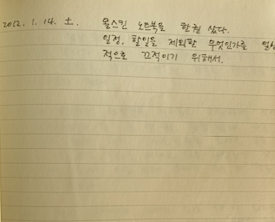 2012. 1. 14. 토. 몰스킨 노트북을 한권 샀다.
일정, 할일을 제외한 무엇인가를
적으로 끄적이기 위해서.